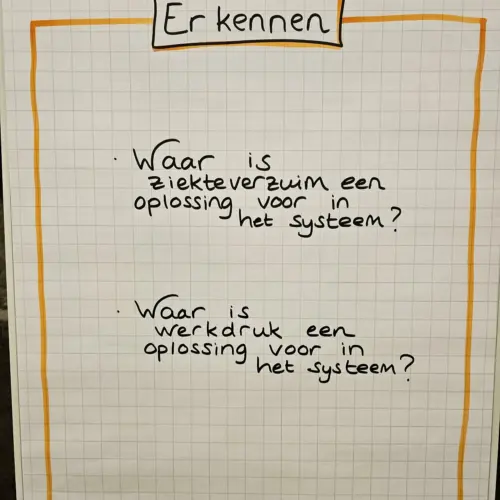 Er kennen
· Waar is
ziekteverzuim een
oplossing voor in
het systeem?
· Waar is
werkdruk een
oplossing voor in
het systeem?